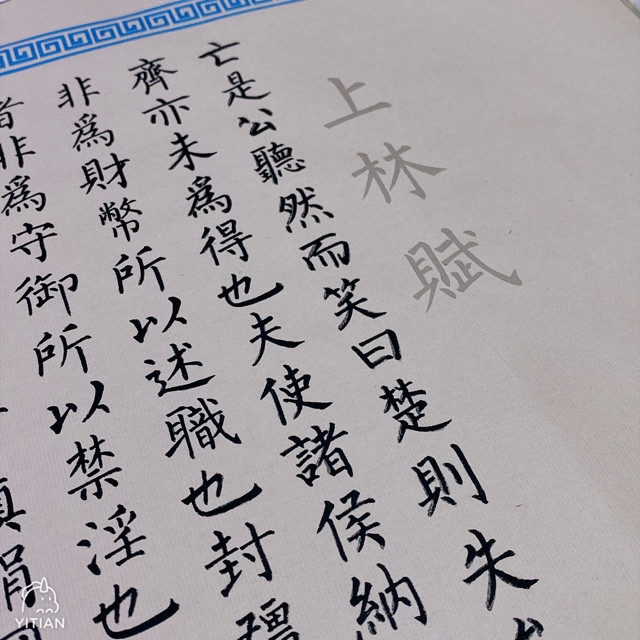 上林賦
亡是公聽然而笑曰楚則失
齊亦未爲得也夫使諸侯納
非爲財幣所以述職也封
者非爲守御所以禁淫也
YITIAN